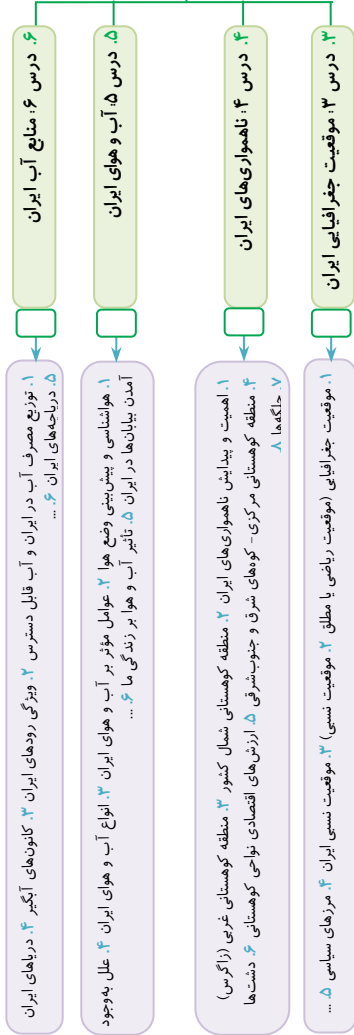 ۳. درس ۳: موقعیت جغرافیایی ایران
۱. موقعیت جغرافیایی (موقعیت ریاضی یا مطلق ۲. موقعیت نسبی) ۳. موقعیت نسبی ایران ۴. مرزهای سیاسی ۵. ...
۴. درس ۴: ناهمواری‌های ایران
۱. اهمیت و پیدایش ناهمواری‌های ایران ۲. منطقه کوهستانی شمال کشور ۳. منطقه کوهستانی غربی (زاگرس)
۴. منطقه کوهستانی مرکزی- کوه‌های شرق و جنوب‌شرقی ۵. ارزش‌های اقتصادی نواحی کوهستانی ۶. دشت‌ها
۷. جلگه‌ها ۸.
۵. درس ۵: آب و هوای ایران
۱. هواشناسی و پیش‌بینی وضع هوا ۲. عوامل مؤثر بر آب و هوای ایران ۳. انواع آب و هوای ایران ۴. علل به‌وجود
آمدن بیابان‌ها در ایران ۵. تأثیر آب و هوا بر زندگی ما ۶. ...
۶. درس ۶: منابع آب ایران
۱. توزیع مصرف آب در ایران و آب قابل دسترس ۲. ویژگی رودهای ایران ۳. کانون‌های آبگیر ۴. دریاهای ایران
۵. دریاچه‌های ایران ۶. ...